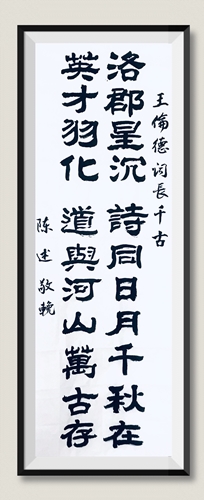 王倫德词長千古
洛郡星沉　詩同日月千秋在
英才羽化　道與河山萬古存
陈述敬輓